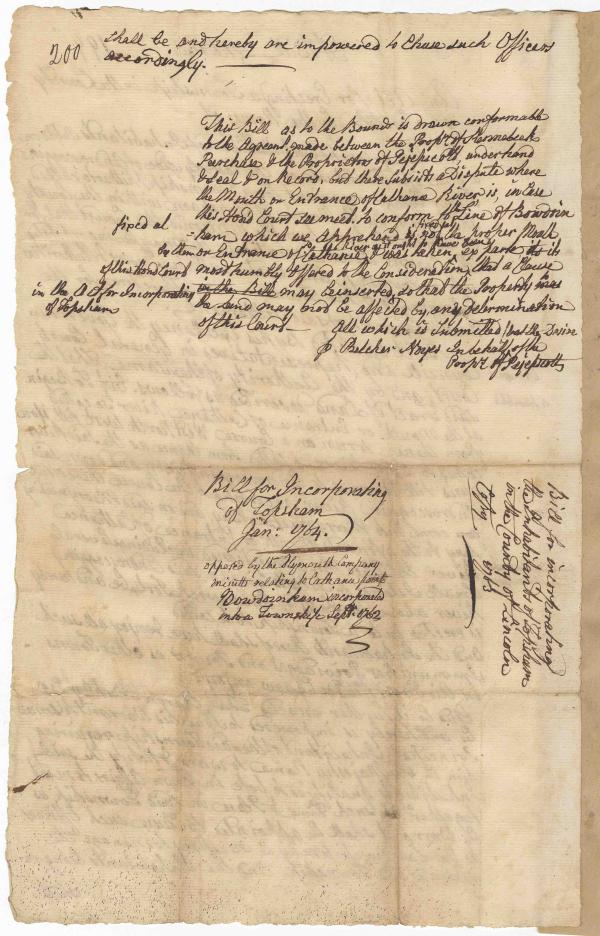 200
shall be and hereby are impowered to Chuse such Officers
accordingly.
This Bill as to the Bounds is drawn conformable
to the Agreemt. made between the Propr. of Kennebeck
Purchase & the Proprietors of Pejepscott, under hand
& seal & on Record, but there subsists a Dispute where
the Mouth or Entrance of Cathana River is, in Case
this Hond Court see meet to conform to Line of Bowdoin
=ham which we apprehend is not the proper Mouth
fixed at
or Entrance of Cathana River as it ought to have been
& was taken ex parte it is
by them
of this Hond Court
most humbly offered to the Consideration that a Clause
in the Bill may be inserted, so that the Property in
in the Act for Incorporating
of Topsham
the Land may not be affected by any Determination
of this Court
All which is Submitted
p Belcher Noyes In behalf of the
Propr. of Pejepscott
Bill for Incorporating
of Topsham
Jan: 1764.
opposed by the Plymouth Company
minutts relating to Cathana point
Bowdoinham incorporated
into a Township Sept. 1762
Bill for incorporating
the Inhabitants of Topsham
in the County of Lincoln
Copy 1763